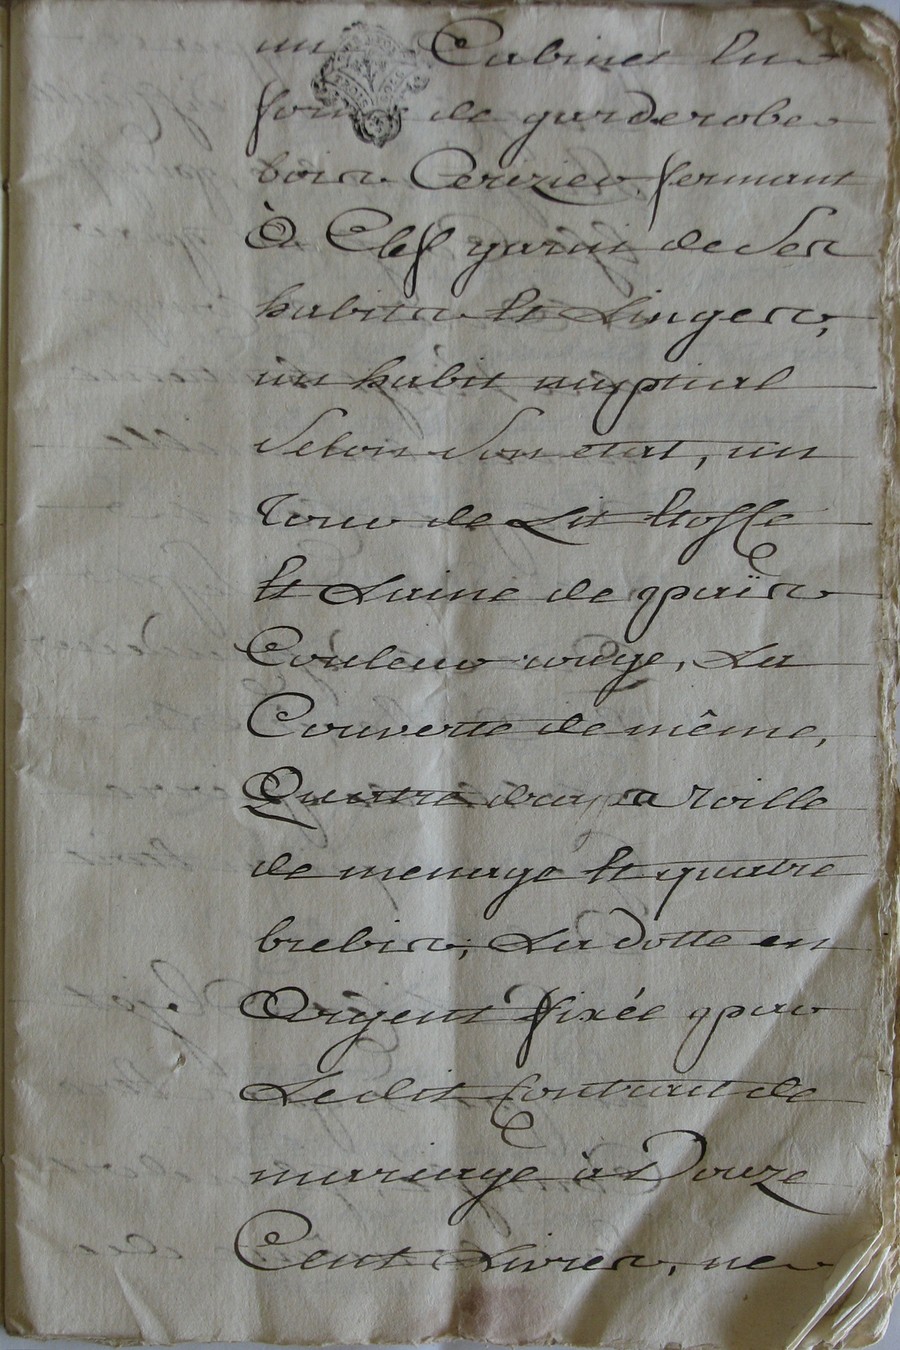 un Cabinet En
forme de garderobe
bois Cerizier, fermant
à Clef garni de Ses
habits Et Linges,
un habit nuptial
Selon Son etat, un
Tour de Lit Etoffe
Et Laine de païs
Couleur rouge, La
Couverte de même,
Quatre draps Toille
de menage Et quatre
brebis, La dotte en
Argent fixée par
Ledit Contrait de
mariage à Douze
Cent Livres, ne